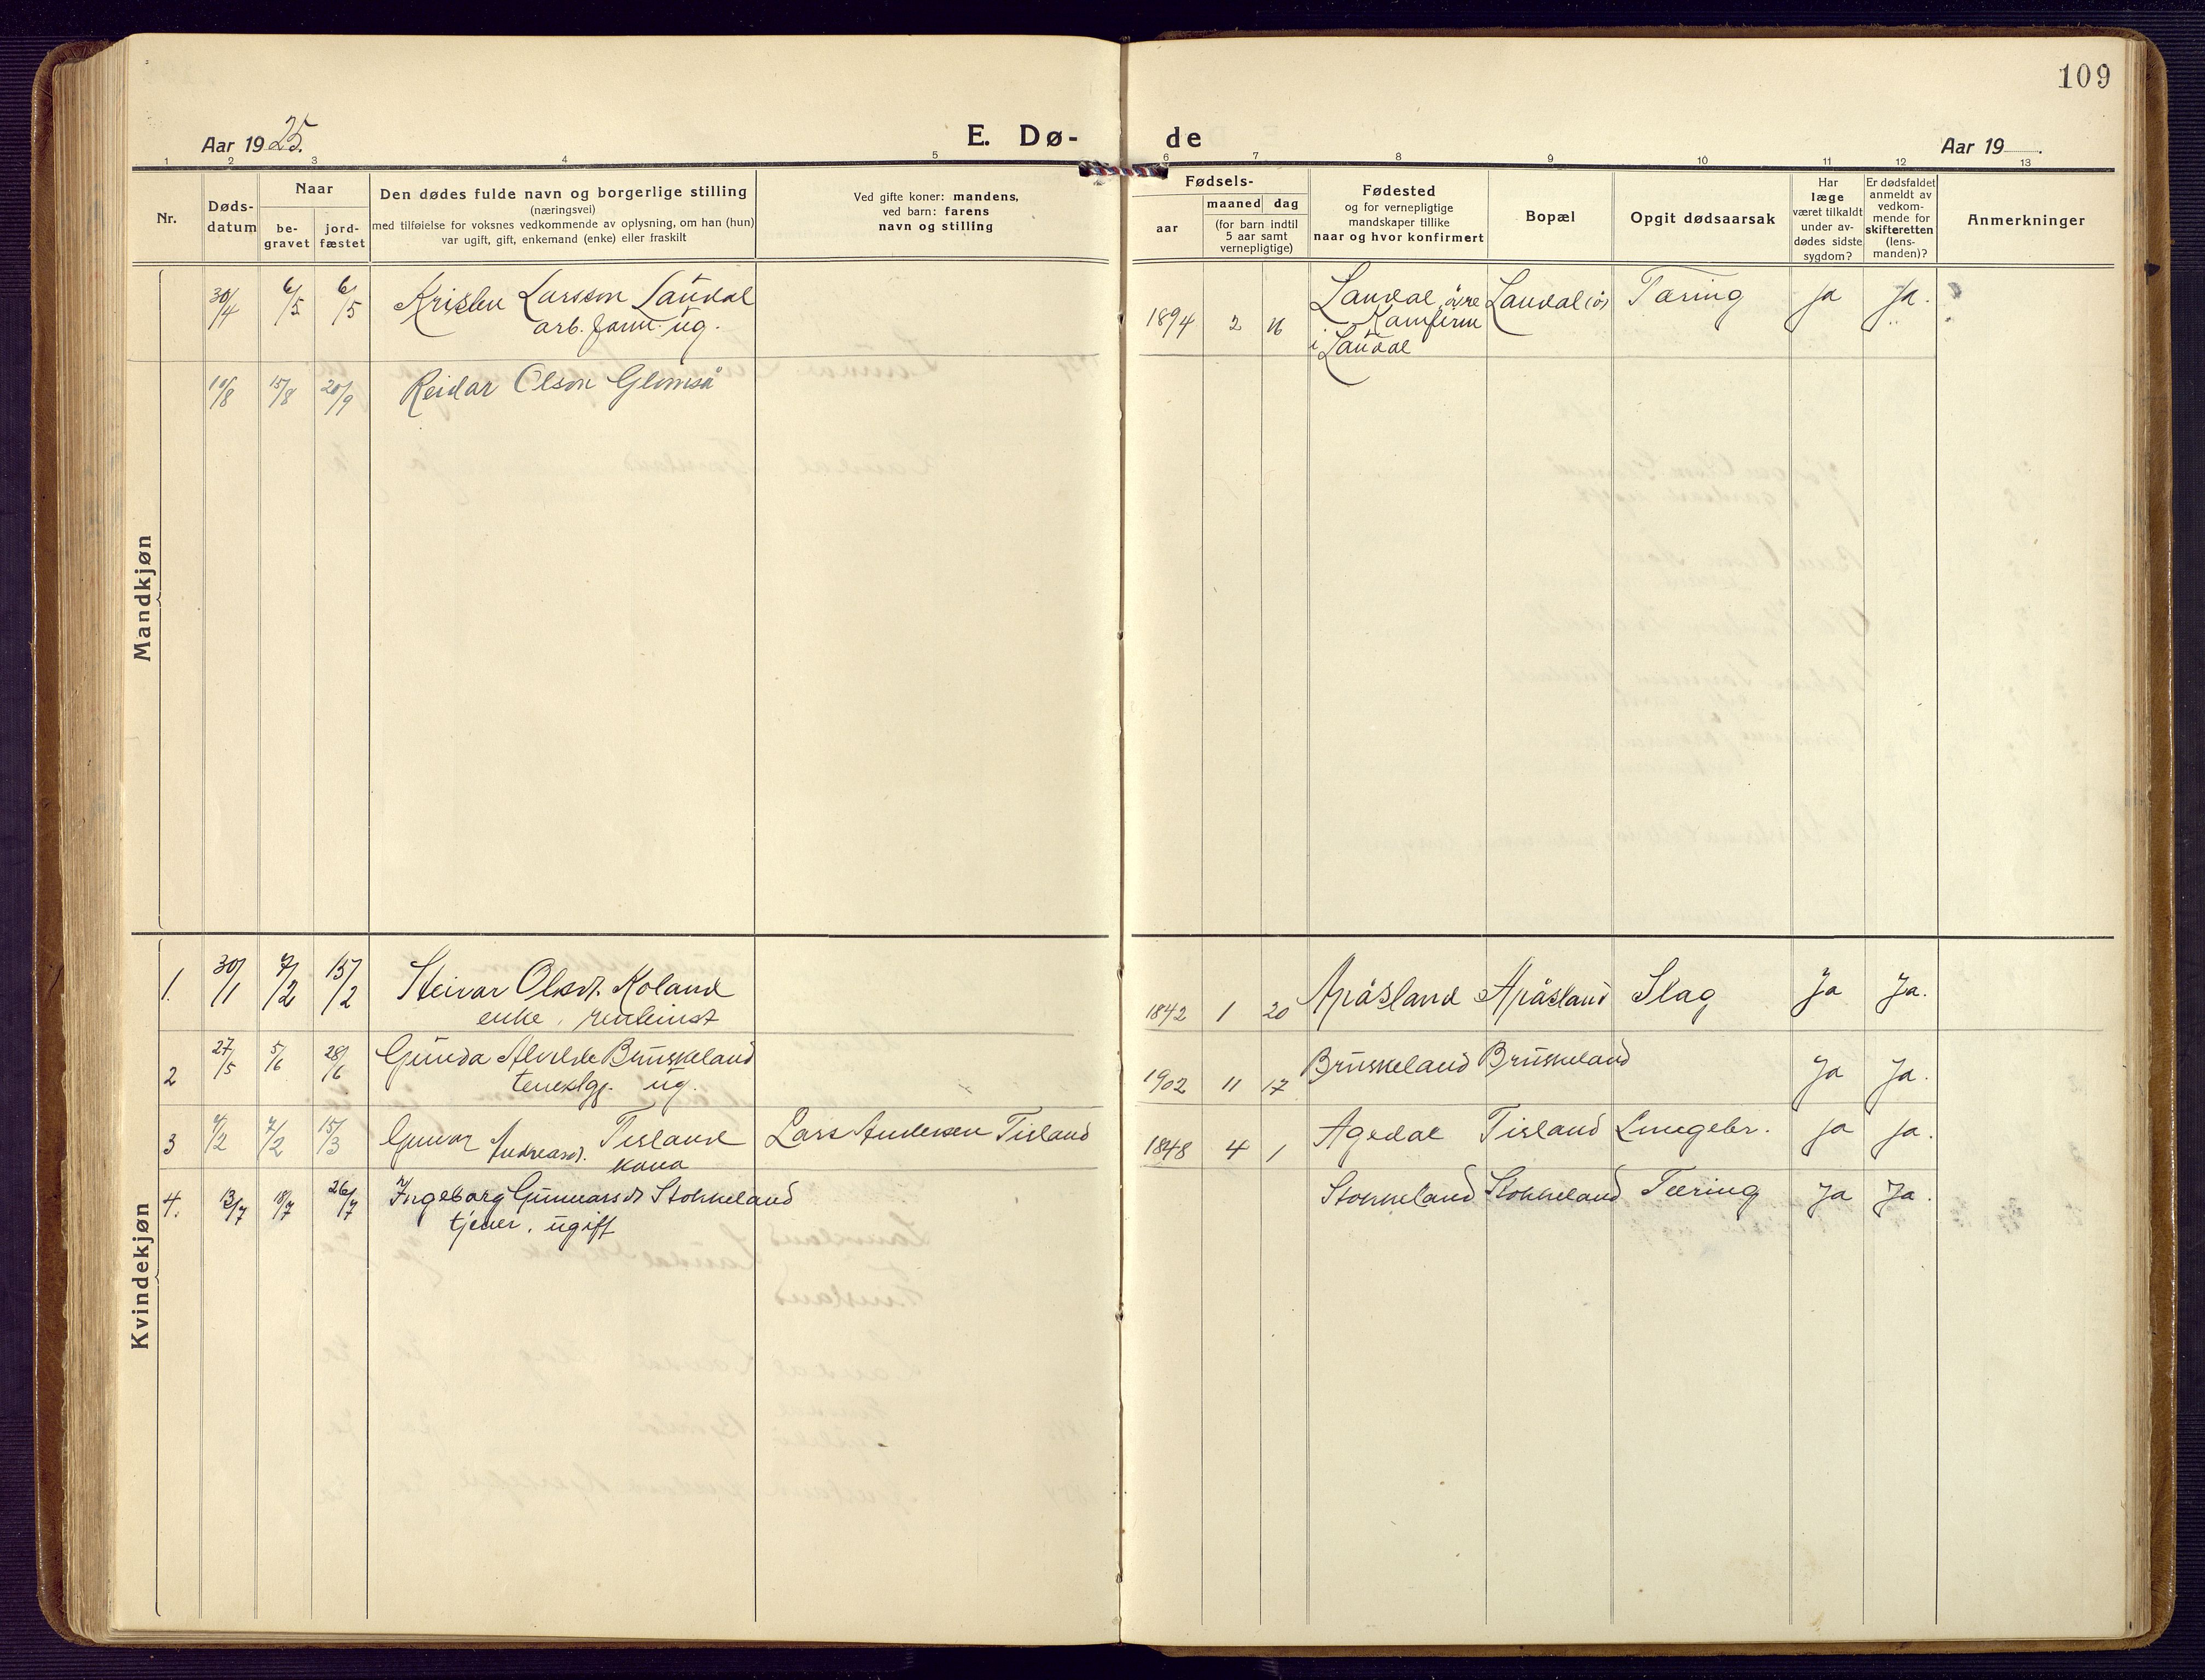 109
Aar 1925.
E. Dø-
de
Aar 19
1 2 3 4 5 6 7 8 9 10 11 12 13
Nr.
Døds-
datum
Naar
be-
gravet
jord-
fæstet
Den dødes fulde navn og borgerlige stilling
(næringsvei)
med tilføielse for voksnes vedkommende av oplysning, om han (hun)
var ugift, gift, enkemand (enke) eller fraskilt
Ved gifte koner: mandens,
ved barn: farens
navn og stilling
Fødsels-
aar
maaned dag
(for barn indtil
5 aar samt
vernepligtige)
Fødested
og for vernepligtige
mandskaper tillike
naar og hvor konfirmert
Bopæl
Opgit dødsaarsak
Har
læge
været tilkaldt
under av-
dødes sidste
sygdom?
Er dødsfaldet
anmeldt av
vedkom-
mende for
skifteretten
(lens-
manden)?
Anmerkninger
Mandkjøn
30/4 6/5 6/5 Kristen Larsson Laudal 1894 2 16 Laudal, övre Laudal Tæring Ja Ja.
arb. ug. Konfirm
i Laudal
10/8 15/8 20/9 Reidar Olson Glomså
Kvindekjøn
1. 30/1 7/2 15/2 Steinar Olsdt. Roland 1842 1 20 Apåsland Apåsland Slag Ja Ja.
enke,
2 27/5 5/6 28/6 Gunda Alvilde Bruskeland 1902 11 17 Bruskeland Bruskeland Ja Ja.
ug.
3 4/2 7/2 15/3 Gunvor Andreasdt. Tisland Lars Andersen Tisland 1848 4 1 Agedal Tisland Lungebr. Ja Ja.
kona
4. 13/7 18/7 26/7 Ingeborg Gunnarsdt Stokkeland Stokkeland Stokkeland Tæring Ja Ja.
tjener, ugift